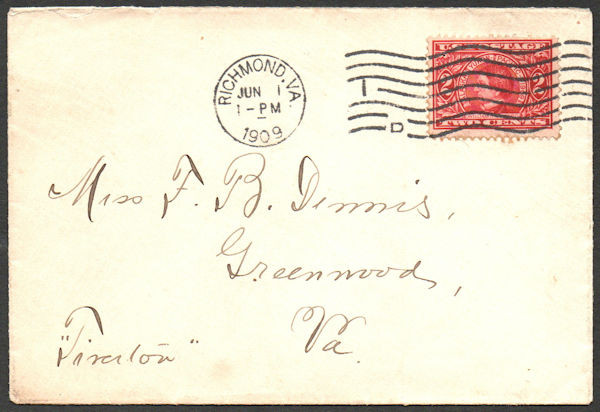 RICHMOND, VA.
JUN 1
1-PM
1909
D
2 2
TWO CENTS
Miss F. B. Dennis,
Greenwood,
Va.
"Tiverton"